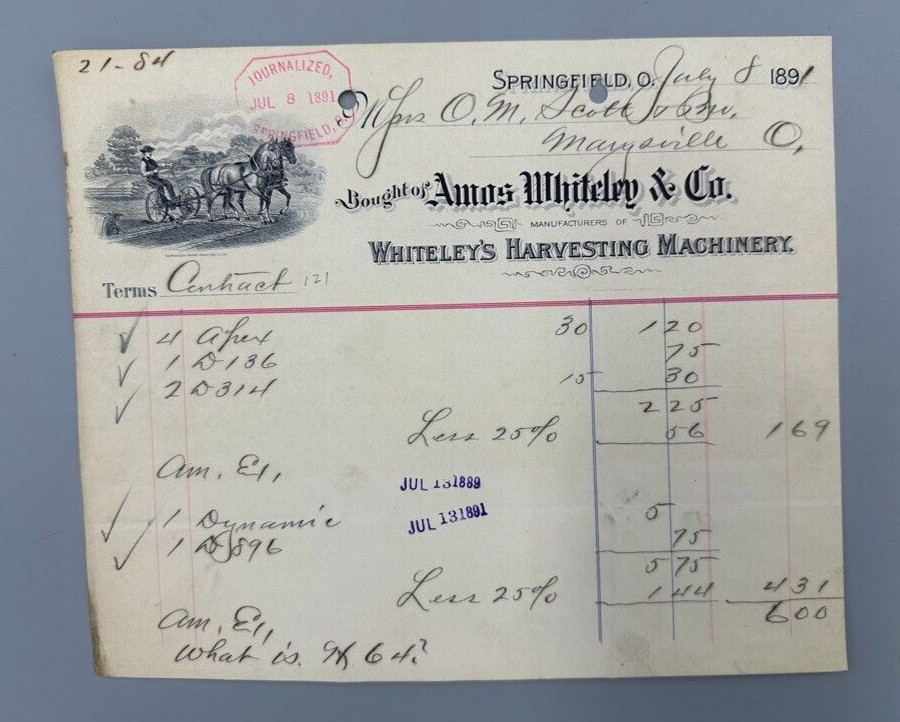 21-84
JOURNALIZED,
JUL 8 1891
SPRINGFIELD, O.
SPRINGFIELD, O. July 8 1891
O. M. Scott & Bro.
Marysville O.
Bought of Amos Whiteley & Co.
MANUFACTURERS OF
WHITELEY'S HARVESTING MACHINERY.
Terms Contract 121
4 Apex 30 120
1 D136 75
2 D314 15 30
225
Less 25% 56 169
Am. Ex,
JUL 131889
JUL 131891
1 Dynamic 5
1 D896 75
575
Less 25% 144 431
600
Am. Ex,
What is 64?